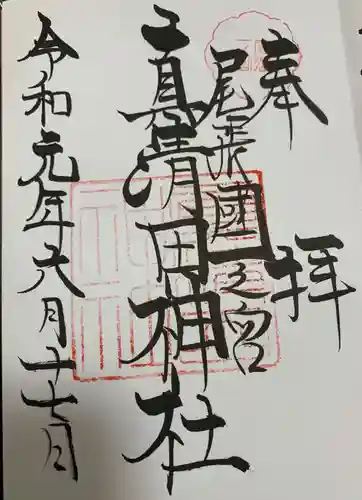 奉拝
尾張國一之宮
真清田神社
令和元年六月二十七日